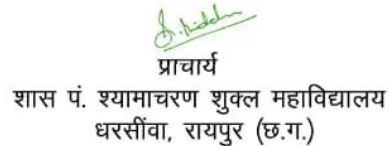 प्राचार्य
शास पं. श्यामाचरण शुक्ल महाविद्यालय
धरसींवा, रायपुर (छ.ग.)